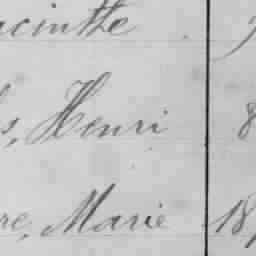 acinthe
s, Henri 8
re, Marie 18